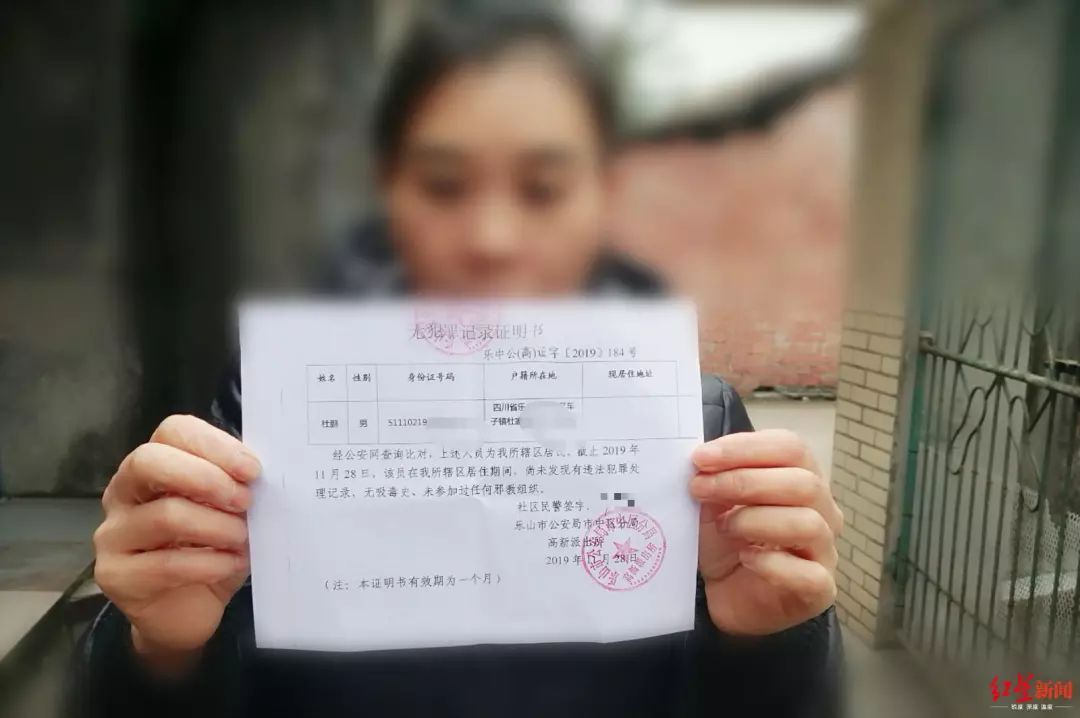 无犯罪记录证明书
乐中公(高)证字〔2019〕184号
姓名 性别 身份证号码 户籍所在地 现居住地址
杜 男 51110219 四川省乐 车
子镇杜
经公安网查询比对,上述人员为我所辖区居民,截止2019年
11月28日,该员在我所辖区居住期间,尚未发现有违法犯罪处
理记录、无吸毒史、未参加过任何邪教组织。
社区民警签字:
乐山市公安局市中区分局
高新派出所
2019年11月28日
(注:本证明书有效期为一个月)
红星新闻